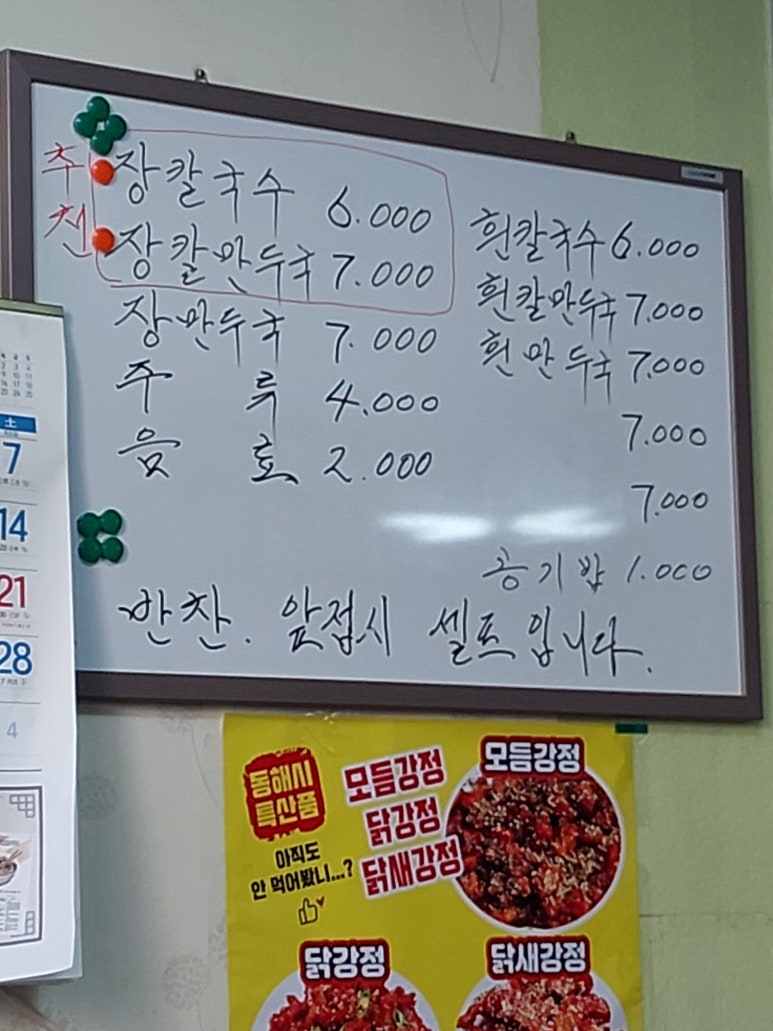 추천
장칼국수 6.000
장칼만두국 7.000
장만두국 7.000
주 류 4.000
음 료 2.000
흰칼국수 6.000
흰칼만두국 7.000
흰만두국 7.000
7.000
7.000
공기밥 1.000
반찬. 앞접시 셀프입니다.
土
7
14
21
28
4
동해시
특산품
아직도
안 먹어봤니...?
모듬강정
닭강정
닭새강정
모듬강정
닭강정
닭새강정